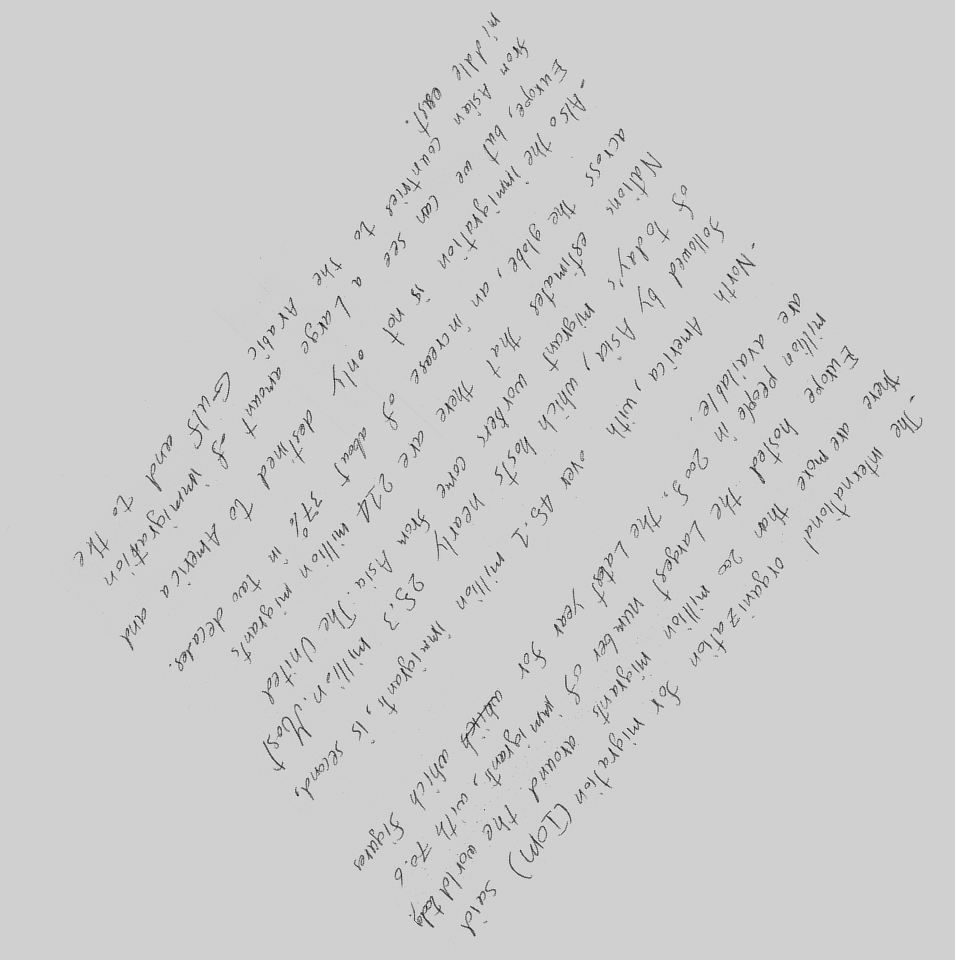 - The international organization for migration (IOM) said
there are more than 200 million migrants around the world today.
Europe hosted the Largest number of immigrant, with 70.6
million people in 2005. the Latest year for which figures
are available.
- North America, with over 45.1 million immigrant, is second,
followed by Asia, which hosts nearly 25.3 million. Most
of today's migrant workers come from Asia. The United
Nations estimates that there are 214 million migrants
across the globe, an increase of about 37% in two decades.
- Also the immigration is not only destined to America and
Europe, but we can see a Large amount of immigration
from Asian countries to the Arabic Gulf and to the
middle east.